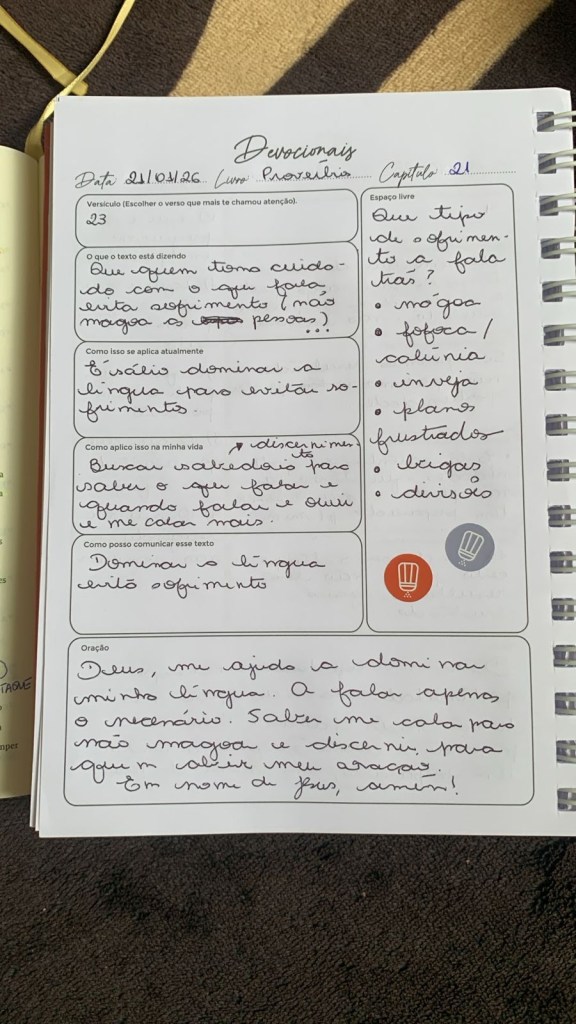 Devocionais
Data 21/01/26 Livro Provérbio Capítulo 21
Versículo (Escolher o verso que mais te chamou atenção).
23
O que o texto está dizendo
Que quem toma cuida-
do com o que fala
evita sofrimento (não
magoa as pessoas)
...
Como isso se aplica atualmente
É sábio dominar a
língua para evitar so-
frimento.
Como aplico isso na minha vida
↗ discernimen-
to
Buscar sabedoria para
saber o que falar e
quando falar e ouvir
e me calar mais.
Como posso comunicar esse texto
Dominar a língua
evita sofrimento
Espaço livre
Que tipo
de sofrimen-
to a fala
trás?
• mágoa
• fofoca/
calúnia
• inveja
• planos
frustrados
• brigas
• divisão
Oração
Deus, me ajuda a dominar
minha língua. A falar apenas
o necessário. Saber me cala para
não magoar e discernir para
quem abrir meu coração.
Em nome de Jesus, amém!
TAQUE
mper